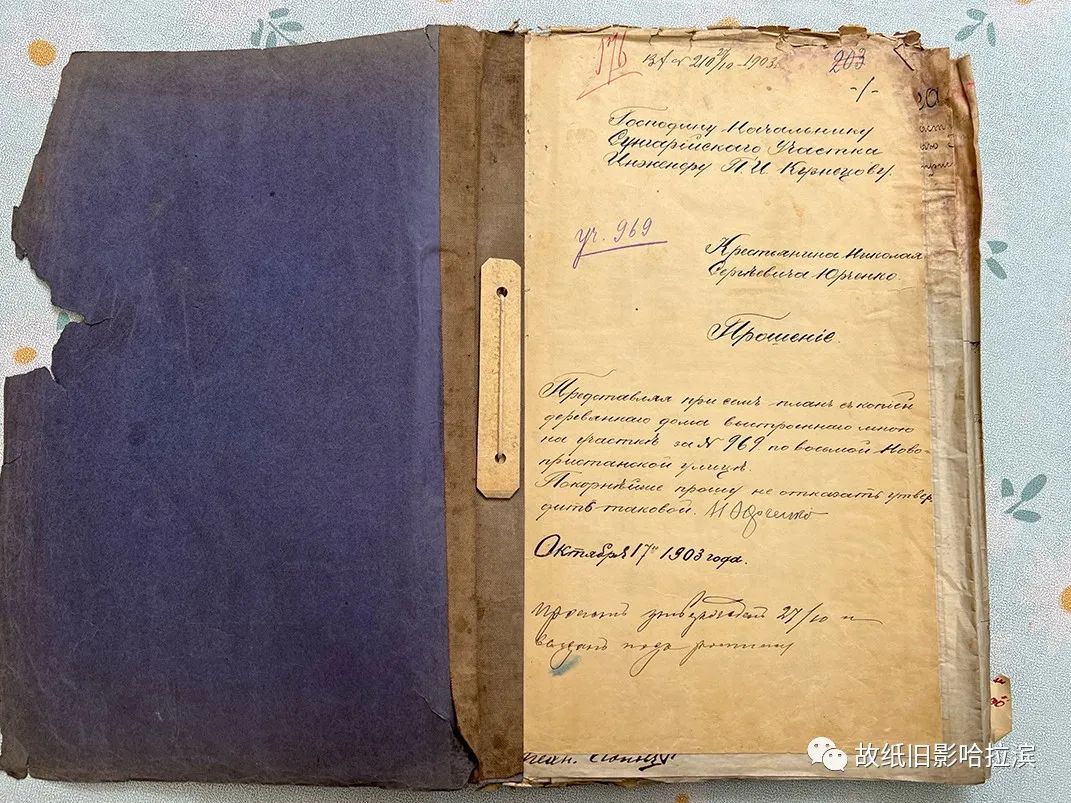 176
Вх № 210 20/10 - 1903 г.
203
-1-
Господину Начальнику
Сунгарійскаго Участка
Инженеру П. И. Кузнецову.
уч. 969
Крестьянина Николая
Сергѣевича Юрченко.
Прошеніе.
Представляя при семъ планъ съ копіей
деревяннаго дома выстроеннаго мною
на участкѣ за № 969 по восьмой Ново-
пристанской улицѣ.
Покорнѣйше прошу не отказать утвер
дить таковой. Н Юрченко
Октября 17го 1903 года.
27/10 и
выданъ подъ росписку
故纸旧影哈拉滨